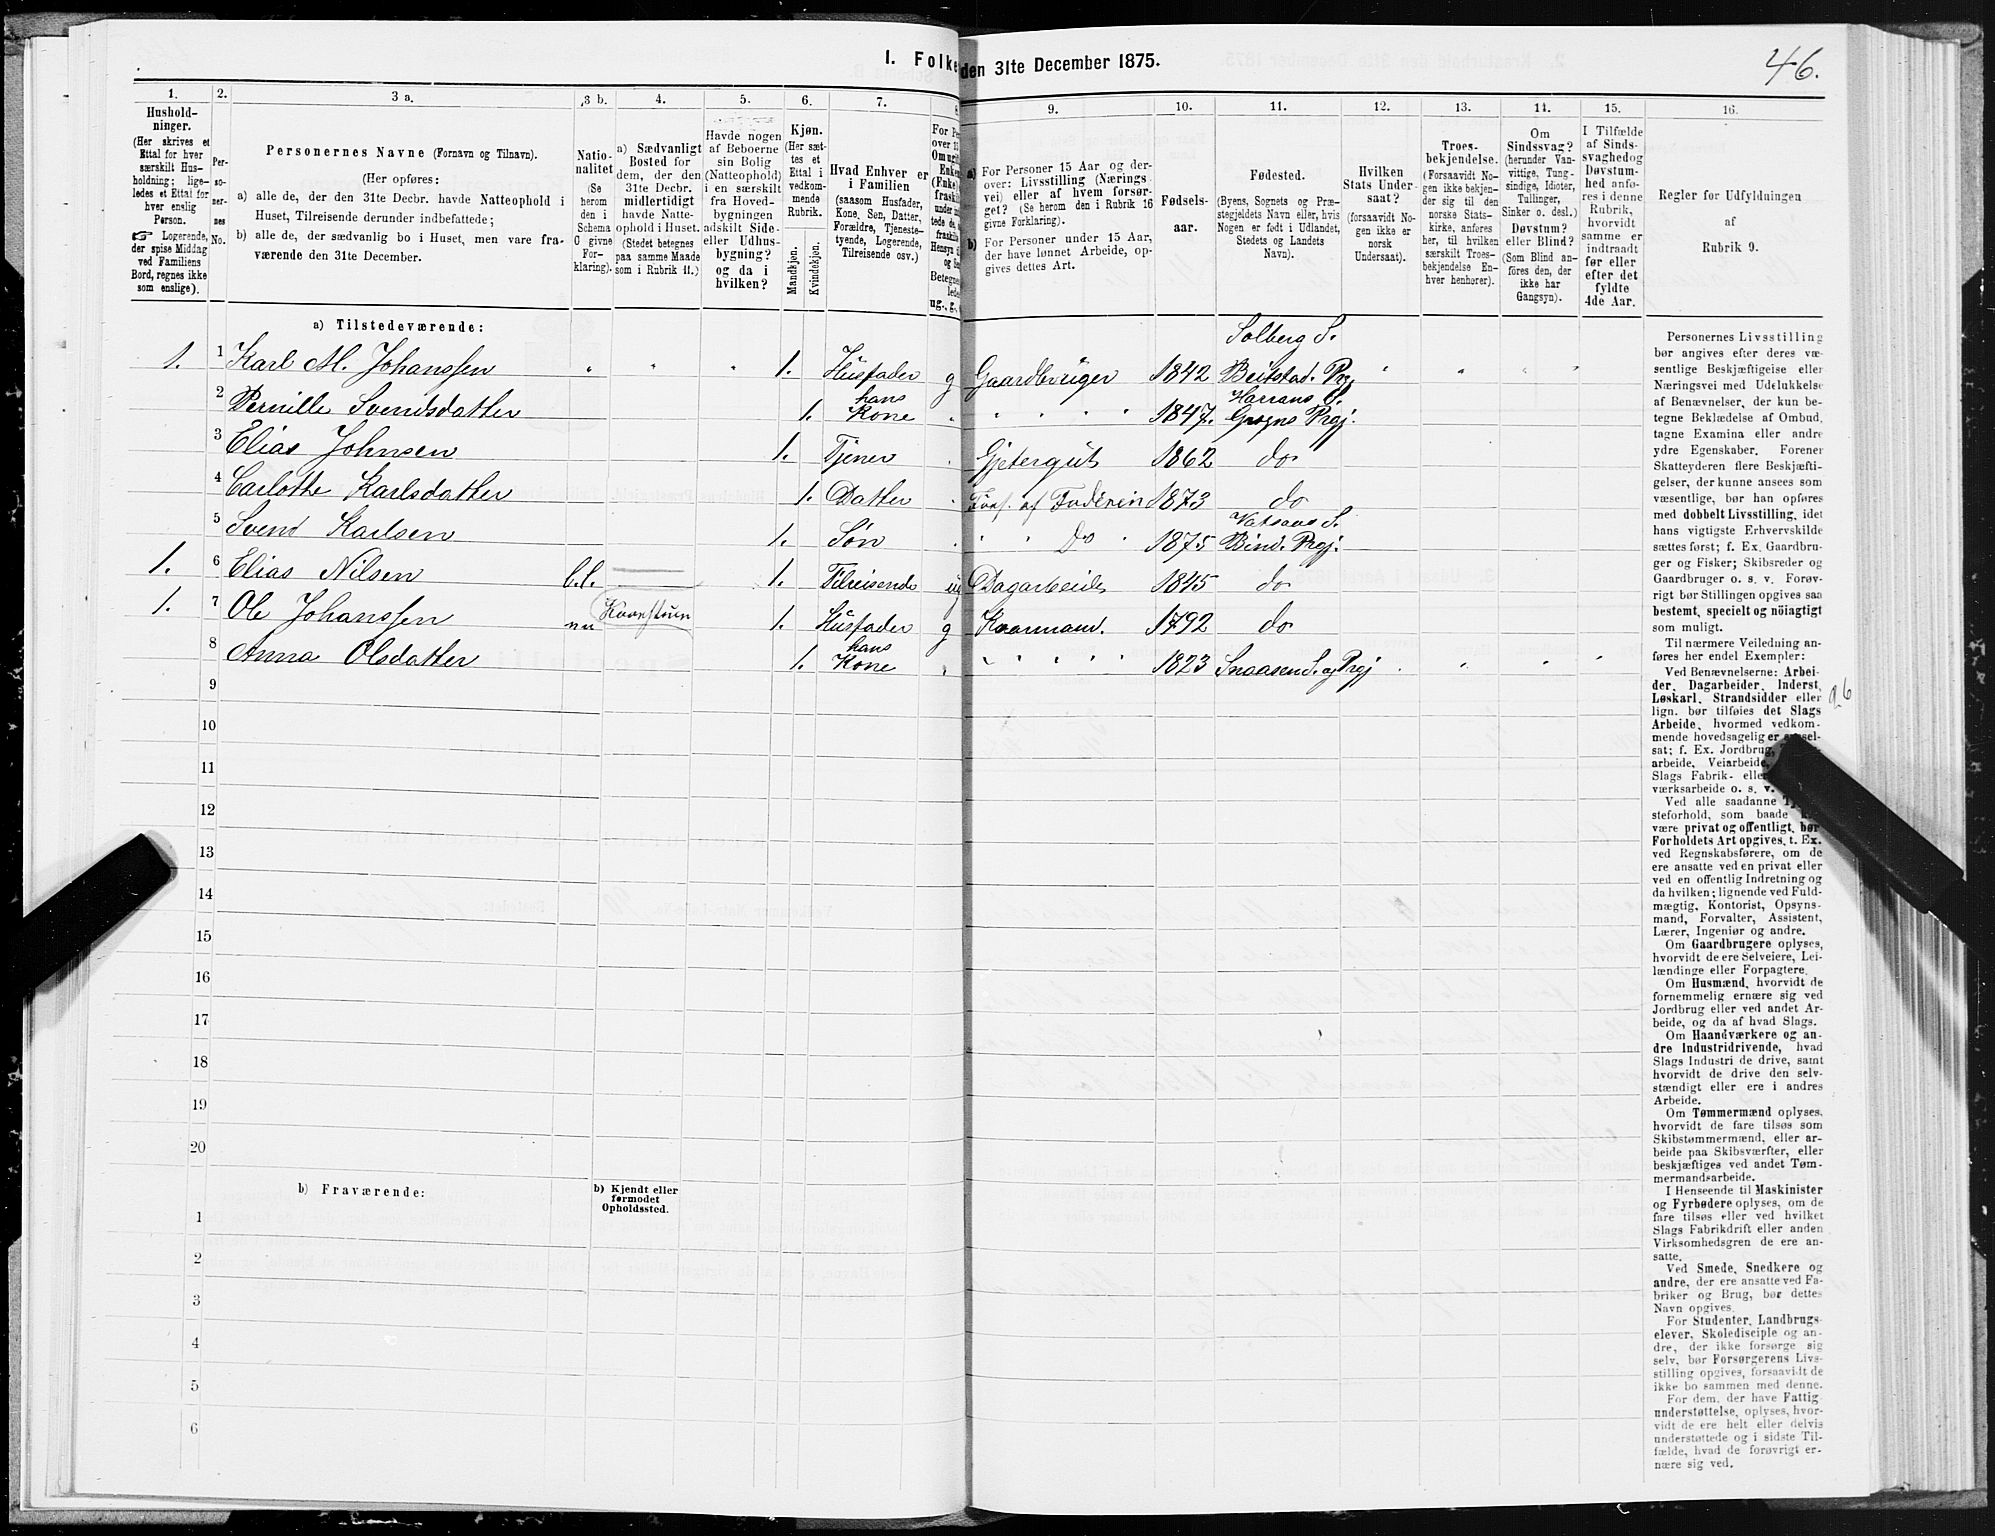 1. Folke den 31te December 1875.
46.
1. 2. 3 a. 3 b. 4. 5. 6. 7. 8 9. 10. 11. 12. 13. 14. 15. 16.
Hushold-
ninger.
(Her skrives et
Ettal for hver
særskilt Hus-
holdning; lige-
ledes et Ettal for
hver enslig
Person.
☞ Logerende,
der spise Middag
ved Familiens
Bord, regnes ikke
som enslige).
Per-
so-
ner-
nes
No.
Personernes Navne (Fornavn og Tilnavn).
(Her opføres:
a) alle de, der den 31te Decbr. havde Natteophold i
Huset, Tilreisende derunder indbefattede;
b) alle de, der sædvanlig bo i Huset, men vare fra-
værende den 31te December.
Natio-
nalitet
(Se
herom
den i
Schema
C givne
For-
klaring).
a) Sædvanligt
Bosted for
dem, der den
31te Decbr.
midlertidigt
havde Natte-
ophold i Huset.
(Stedet betegnes
paa samme Maade
som i Rubrik 11.)
Havde nogen
af Beboerne
sin Bolig
(Natteophold)
i en særskilt
fra Hoved-
bygningen
adskilt Side-
eller Udhus-
bygning?
og da i
hvilken?
Kjøn.
(Her sæt-
tes et
Ettal i
vedkom-
mende
Rubrik.
Mandkjøn.
Kvindekjøn.
Hvad Enhver er
i Familien
(saasom Husfader,
Kone, Søn, Datter,
Forældre, Tjeneste-
tyende, Logerende,
Tilreisende osv.)
For Pe
over 15
Om ugift
Enke
(Enke)
fraskil
under in
tede de
fraskilte
Hensyn t
og Se
Betegne
lede
ug., g.,
a) For Personer 15 Aar og der-
over: Livsstilling (Nærings-
vei) eller af hvem forsør-
get? (Se herom den i Rubrik 16
givne Forklaring).
b) For Personer under 15 Aar,
der have lønnet Arbeide, op-
gives dettes Art.
Fødsels-
aar.
Fødested.
(Byens, Sognets og Præ-
stegjeldets Navn eller, hvis
Nogen er født i Udlandet,
Stedets og Landets
Navn).
Hvilken
Stats Under-
saat?
(forsaavidt No-
gen ikke er
norsk
Undersaat).
Troes-
bekjendelse.
(Forsaavidt No-
gen ikke bekjen-
der sig til den
norske Stats-
kirke, anføres
her, til hvilken
særskilt Troes-
bekjendelse En-
hver henhører).
Om
Sindssvag?
(herunder Van-
vittige, Tung-
sindige, Idioter,
Tullinger,
Sinker o. desl.)
Døvstum?
eller Blind?
(Som Blind an-
føres den, der
ikke har
Gangsyn).
I Tilfælde
af Sinds-
svaghed og
Døvstum-
hed anfø-
res i denne
Rubrik,
hvorvidt
samme er
indtraadt
før eller
efter det
fyldte
4de Aar.
Regler for Udfyldningen
af
Rubrik 9.
a) Tilstedeværende:
Solberg S.
1. 1 Karl M. Johanssen " " " 1. Husfader g Gaardbruger 1842 Beitstad. Prgj " " " "
hans Harrans S.
2 Pernille Svendsdatter 1. Kone " " " " " 1847. Grogns Prgj.
3 Elias Johnsen 1. Tjener Gjetergut 1862 do
4 Carlothe Karlsdatter 1. Datter Fors. af Faderen 1873 do
Vatsaas S.
5 Svend Karlsen 1. Søn " " Do " 1875 Bind. Prgj.
1. 6 Elias Nilsen b.l. 1. Tilreisende ug Dagarbeide 1845 do
1. 7 Ole Johanssen nu 1. Husfader g Kaarmand. 1792 do
hans
8 Anna Olsdatter 1. Kone " " " " " 1823 Snaasen S. og Prgj " " "
9
10
11
12
13
14
15
16
17
18
19
20
b) Fraværende:
b) Kjendt eller
formodet
Opholdssted.
1
2
3
4
5
6
Personernes Livsstilling
bør angives efter deres væ-
sentlige Beskjæftigelse eller
Næringsvei med Udelukkelse
af Benævnelser, der kun be-
tegne Beklædelse af Ombud,
tagne Examina eller andre
ydre Egenskaber. Forener
Skatteyderen flere Beskjæfti-
gelser, der kunne ansees som
væsentlige, bør han opføres
med dobbelt Livsstilling, idet
hans vigtigste Erhvervskilde
sættes først; f. Ex. Gaardbru-
ger og Fisker; Skibsreder og
Gaardbruger o. s. v. Forøv-
rigt bør Stillingen opgives saa
bestemt, specielt og nøiagtigt
som muligt.
Til nærmere Veiledning an-
føres her endel Exempler:
Ved Benævnelserne: Arbei-
der, Dagarbeider, Inderst,
Løskarl, Strandsidder eller
lign. bør tilføies det Slags
Arbeide, hvormed vedkom-
mende hovedsagelig er syssel-
sat; f. Ex. Jordbrug,
arbeide, Veiarbeide,
Slags Fabrik- eller
værksarbeide o. s. v.
Ved alle saadanne
steforhold, som baade
være privat og offentligt, bør
Forholdets Art opgives, t. Ex.
ved Regnskabsførere, om de
ere ansatte ved en privat eller
ved en offentlig Indretning og
da hvilken; lignende ved Fuld-
mægtig, Kontorist, Opsyns-
mand, Forvalter, Assistent,
Lærer, Ingeniør og andre.
Om Gaardbrugere oplyses,
hvorvidt de ere Selveiere, Lei-
lændinge eller Forpagtere.
Om Husmænd, hvorvidt de
fornemmelig ernære sig ved
Jordbrug eller ved andet Ar-
beide, og da af hvad Slags.
Om Haandværkere og an-
dre Industridrivende, hvad
Slags Industri de drive, samt
hvorvidt de drive den selv-
stændigt eller ere i andres
Arbeide.
Om Tømmermænd oplyses,
hvorvidt de fare tilsøs som
Skibstømmermænd, eller ar-
beide paa Skibsværfter, eller
beskjæftiges ved andet Tøm-
mermandsarbeide.
I Henseende til Maskinister
og Fyrbødere oplyses, om de
fare tilsøs eller ved hvilket
Slags Fabrikdrift eller anden
Virksomhedsgren de ere an-
satte.
Ved Smede, Snedkere og
andre, der ere ansatte ved Fa-
briker og Brug, bør dettes
Navn opgives.
For Studenter, Landbrugs-
elever, Skoledisciple og an-
dre, der ikke forsørge sig
selv, bør Forsørgerens Livs-
stilling opgives, forsaavidt de
ikke bo sammen med denne.
For dem, der have Fattig-
understøttelse, oplyses, hvor-
vidt de ere helt eller delvis
understøttede og i sidste Til-
fælde, hvad de forøvrigt er-
nære sig ved.